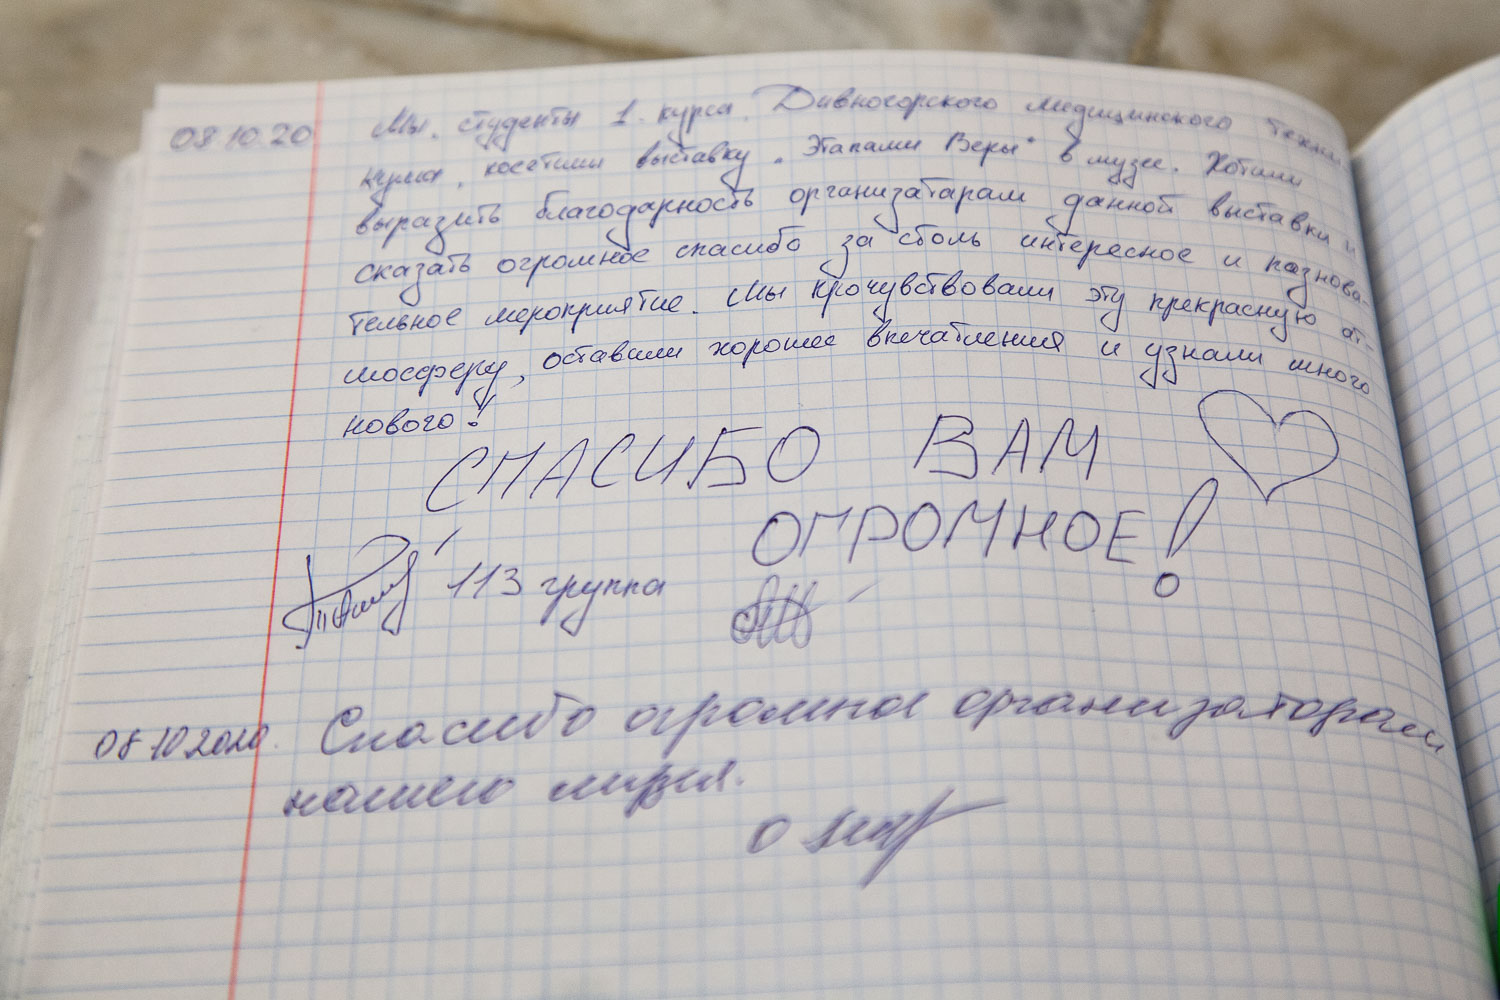 08.10.20 Мы, студенты 1 курса, Дивногорского медицинского техни
кума, посетили выставку "Этапами Веры" в музее. Хотим
выразить благодарность организатарам данной выставки и
сказать огромное спасибо за столь интересное и познова-
тельное мероприятие. Мы прочувствовали эту прекрасную ат-
мосферу, оставили хорошее впечатления и узнали много
нового!
СПАСИБО ВАМ
ОГРОМНОЕ!
113 группа
08 10 2020. Спасибо огромное организаторам
нашего